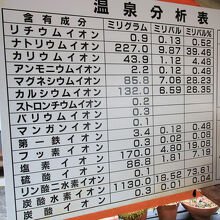 温泉分析表
含有成分 ミリグラム ミリバル ミリバル%
リチウムイオン 0.9 0.13 0.52
ナトリウムイオン 227.0 9.87 39.46
カリウムイオン 43.9 1.12 4.48
アンモニウムイオン 2.2 0.12 0.48
マグネシウムイオン 86.7 7.13
カルシウムイオン 132.0 6.59 26.35
ストロンチウムイオン 0.2
バリウムイオン
マンガンイオン 0.2
第一鉄イオン 0.04 0.16
フッ素イオン 0.02 0.08
塩素イオン 170.0 4.80 19.08
硫酸イオン
リン酸二水素イオン
炭酸水素イオン 1130.0 18.52 73.61
炭酸イオン 0.3 0.01 0.04